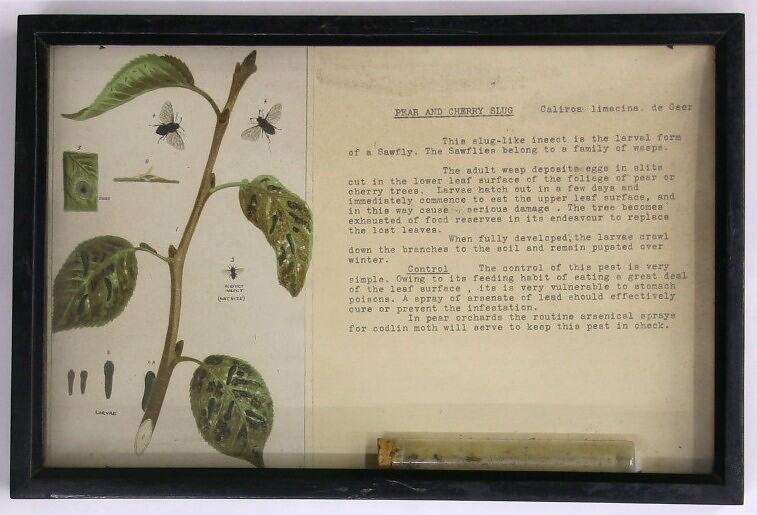 PEAR AND CHERRY SLUG Caliroa limacina. de Geer
This slug-like insect is the larval form
of a Sawfly. The Sawflies belong to a family of wasps.
The adult wasp deposits eggs in slits
cut in the lower leaf surface of the foliage of pear or
cherry trees. Larvae hatch out in a few days and
immediately commence to eat the upper leaf surface, and
in this way cause serious damage . The tree becomes
exhausted of food reserves in its endeavour to replace
the lost leaves.
When fully developed, the larvae crawl
down the branches to the soil and remain pupated over
winter.
Control The control of this pest is very
simple. Owing to its feeding habit of eating a great deal
of the leaf surface , its is very vulnerable to stomach
poisons. A spray of arsenate of lead should effectively
cure or prevent the infestation.
In pear orchards the routine arsenical sprays
for codlin moth will serve to keep this pest in check.
5
6
3
PERFECT
INSECT
(NAT SIZE)
LARVAE